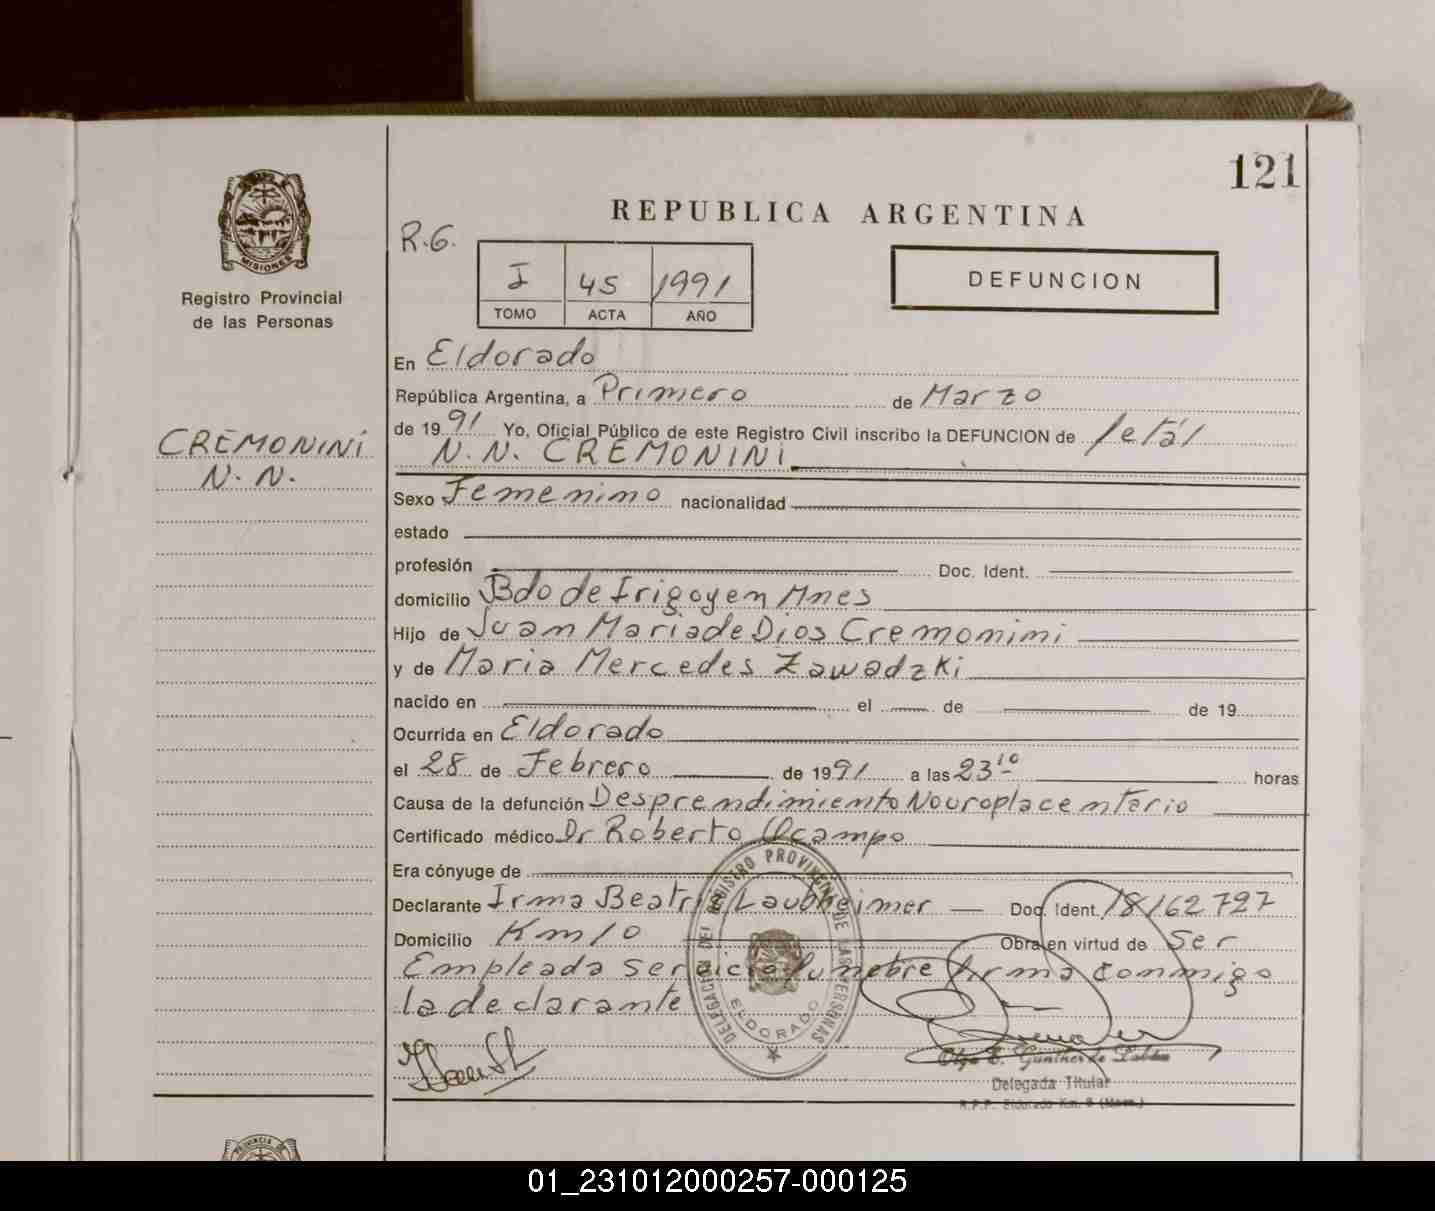 121
REPUBLICA ARGENTINA
R.G.
I 45 1991
TOMO ACTA AÑO
DEFUNCION
MISIONES
Registro Provincial
de las Personas
CREMONINI
N. N.
En Eldorado
República Argentina, a Primero de Marzo
de 1991 Yo, Oficial Público de este Registro Civil inscribo la DEFUNCION de fetál
N. N. CREMONINI
Sexo Femenino nacionalidad
estado
profesión Doc. Ident.
domicilio Bdo de Irigoyen Mnes
Hijo de Juan Maria de Dios Cremonini
y de Maria Mercedes Zawadzki
nacido en el de de 19
Ocurrida en Eldorado
el 28 de Febrero de 1991 a las 23 10 horas
Causa de la defunción Desprendimiento Nouroplacentario
Certificado médico Dr Roberto Ocampo
Era cónyuge de
Declarante Irma Beatriz Laubheimer Doc. Ident. 18162727
Domicilio Km 10 Obra en virtud de Ser
Empleada servicio funebre firma conmigo
la declarante
DELEGACION DEL REGISTRO PROVINCIAL DE LAS PERSONAS
ELDORADO
Olga E. Günther de
Delegada Titular
R.P.P. Eldorado Km. 9
PROVINCIA DE
01_231012000257-000125